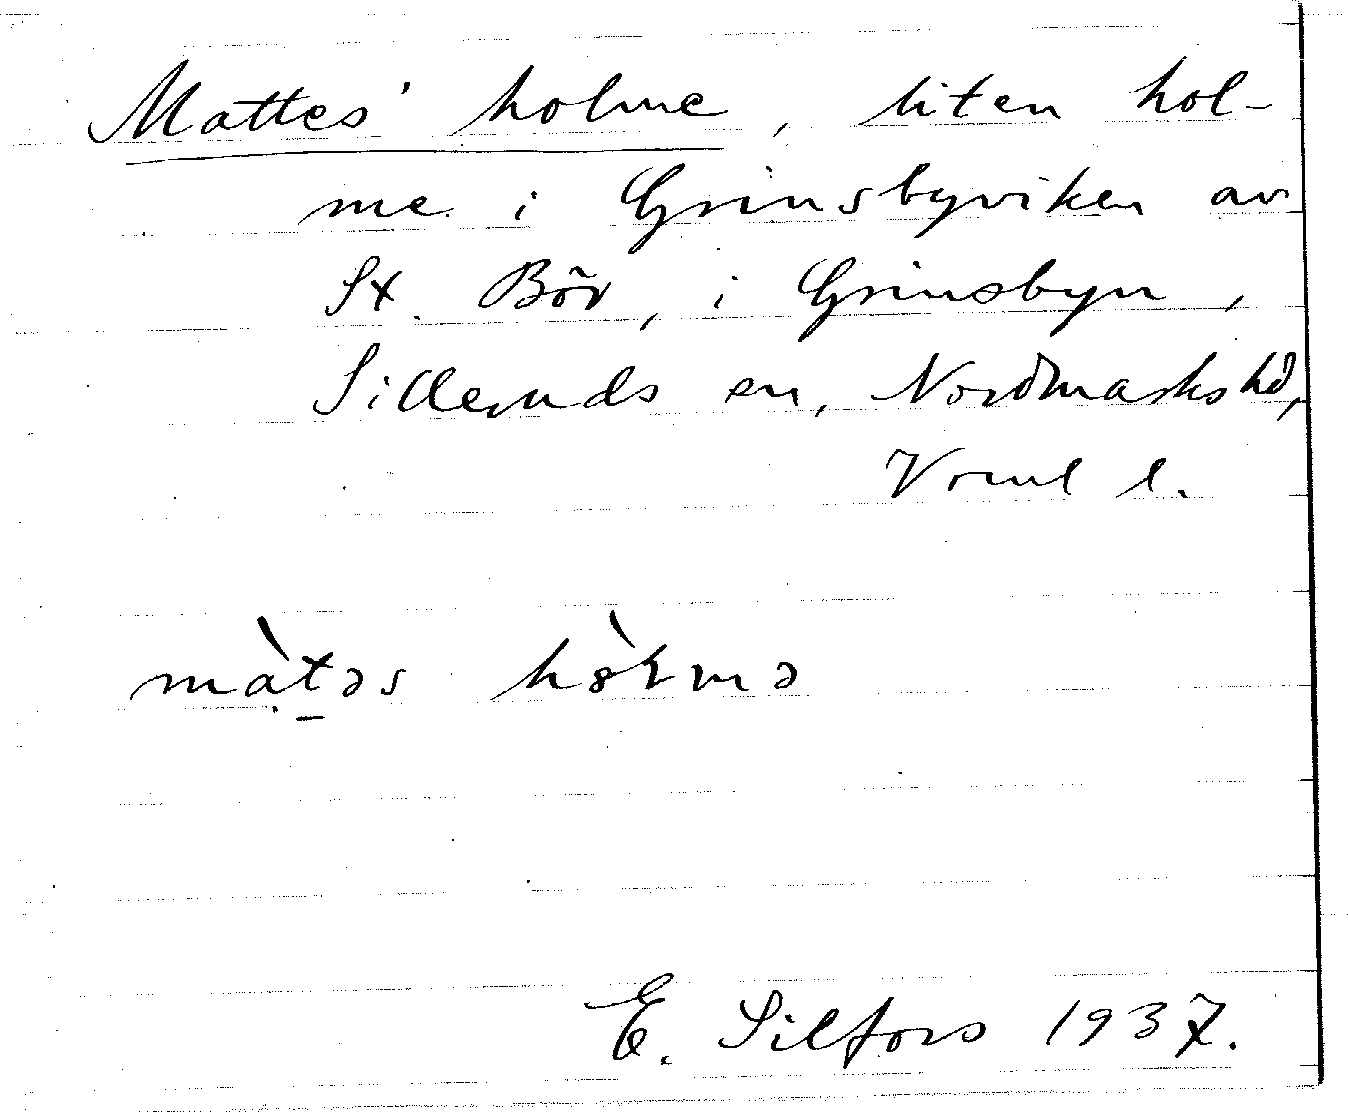 Mattes' holme, liten hol-
me i Grinsbyviken av
St. Bör, i Grinsbyn,
Silleruds sn, Nordmarks hd,
Vrml l.
màtəs hòɫmə
E. Silfors 1937.